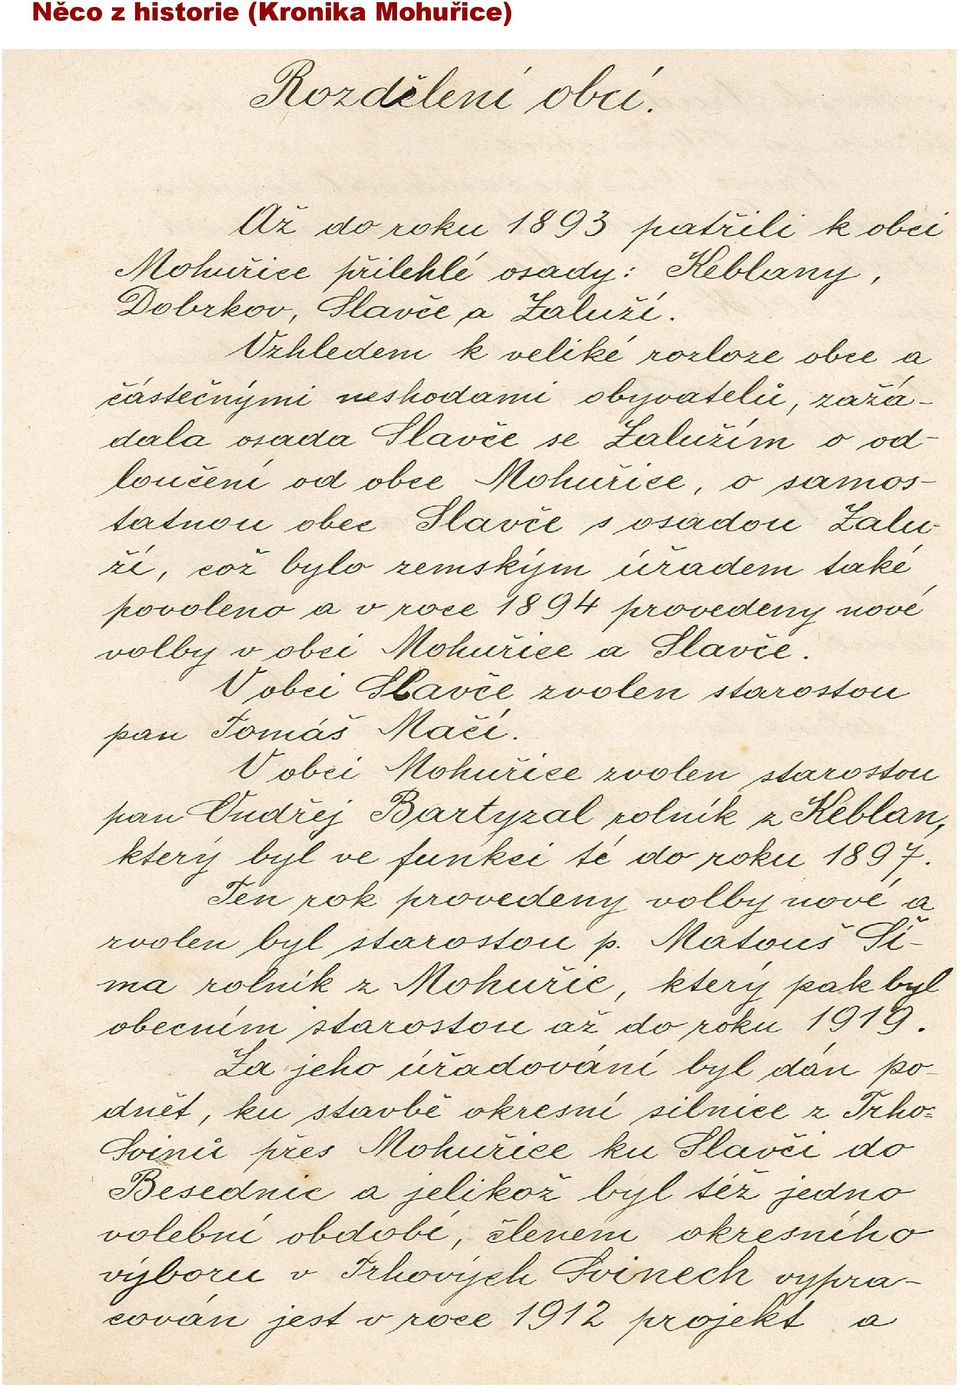 Něco z historie (Kronika Mohuřice)
Rozdělení obcí.
Až do roku 1893 patřili k obci
Mohuřice přilehlé osady: Keblany,
Dobrkov, Slavče a Záluží.
Vzhledem k veliké rozloze obce a
částečnými neshodami obyvatelů, zažá-
dala osada Slavče se Zalužím o od-
loučení od obce Mohuřice, o samos-
tatnou obec Slavče s osadou Zalu-
ží, což bylo zemským úřadem také
povoleno a v roce 1894 provedeny nové
volby v obci Mohuřice a Slavče.
V obci Slavče zvolen starostou
pan Tomáš Mačí.
V obci Mohuřice zvolen starostou
pan Ondřej Bartyzal rolník z Keblan,
který byl ve funkci té do roku 1897.
Ten rok provedeny volby nové a
zvolen byl starostou p. Matouš Ší-
ma rolník z Mohuřic, který pak byl
obecním starostou až do roku 1919.
Za jeho úřadování byl dán po-
dnět, ku stavbě okresní silnice z Trho-
Svinů přes Mohuřice ku Slavči do
Besednic a jelikož byl též jedno
volební období, členem okresního
výboru v Trhových Svinech vypra-
cován jest v roce 1912 projekt a